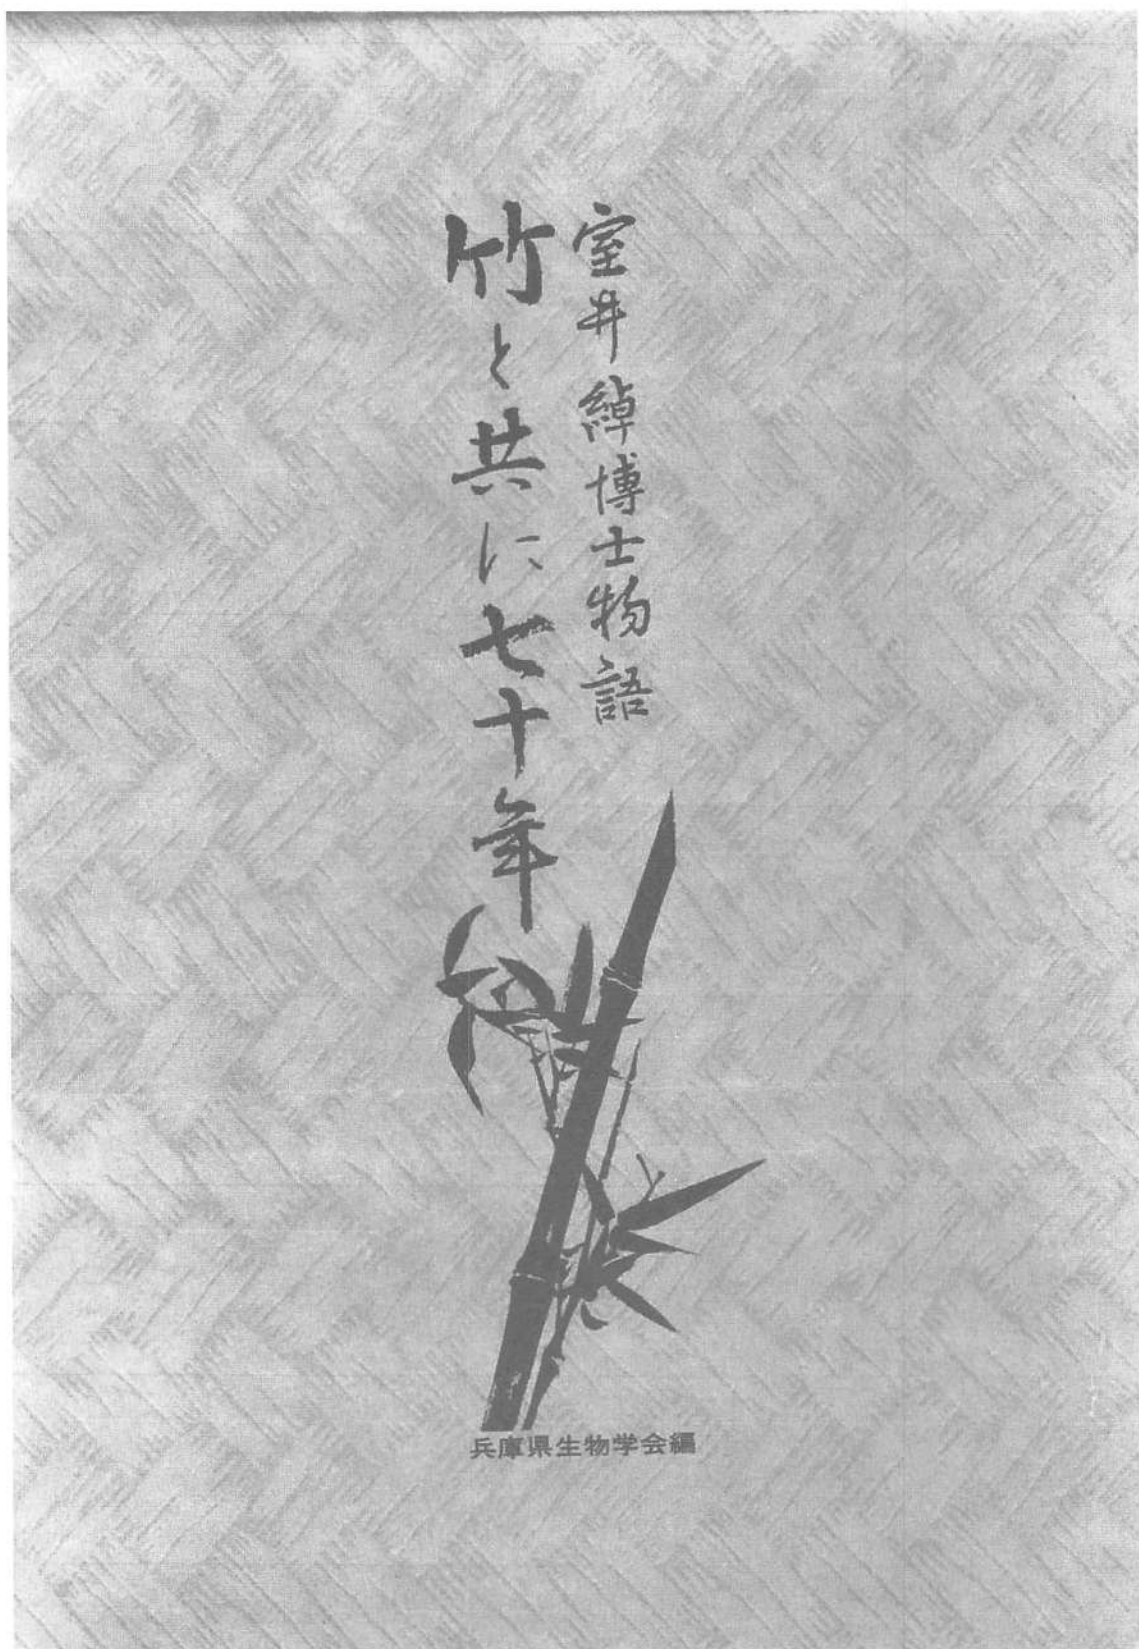 室井綽博士物語
竹と共に七十年
兵庫県生物学会編